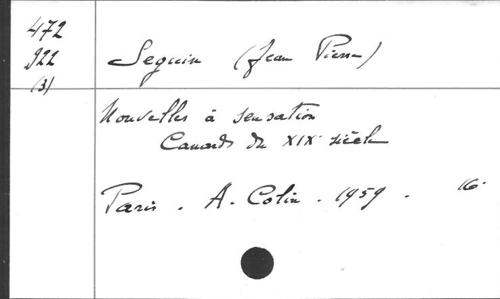 472
922
(3)
Seguin (Jean Pierre)
Nouvelles à sensation
Canards du XIXe siècle
Paris. A. Colin. 1959. 16.